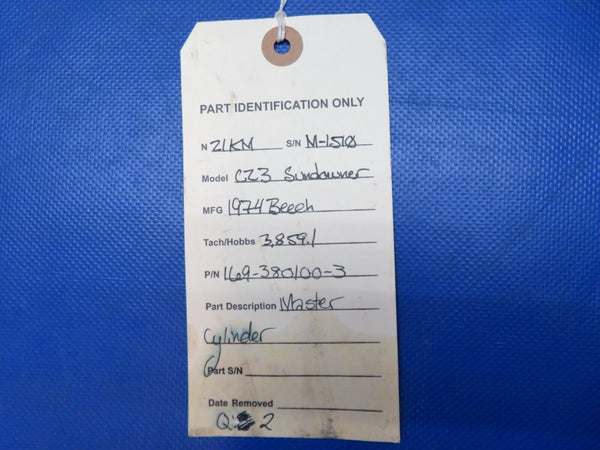 PART IDENTIFICATION ONLY
N 21KM S/N M-1510
Model C23 Sundowner
MFG 1974 Beech
Tach/Hobbs 3,859.1
P/N 169-380100-3
Part Description Master
Cylinder
Part S/N
Date Removed
Q: 2